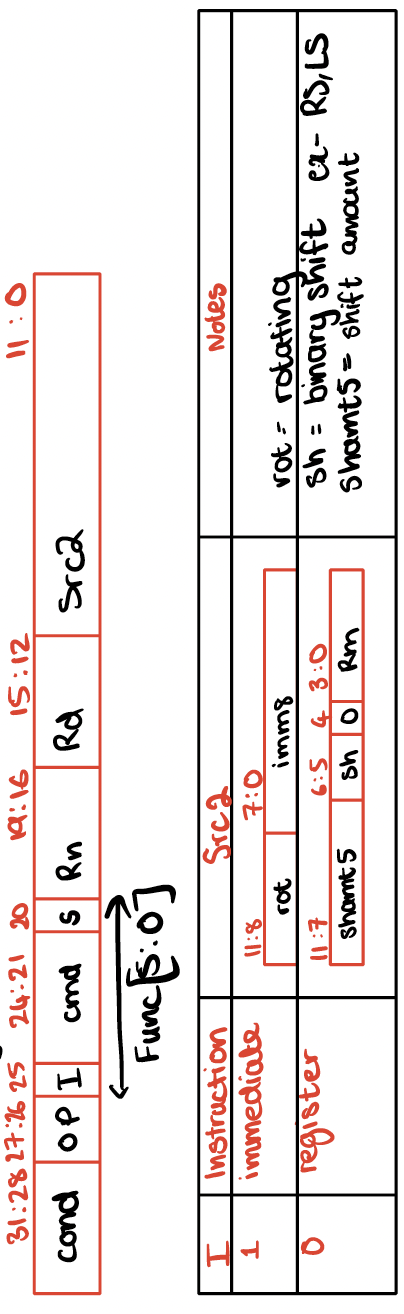 31:28 27:26 25 24:21 20 19:16 15:12 11:0
cond OP I cmd S Rn Rd Src2
Func[5:0]
I Instruction Src2 Notes
1 immediate
11:8 7:0
rot imm8
rot = rotating
0 register
11:7 6:5 4 3:0
shamt5 sh 0 Rm
sh = binary shift ex- RS,LS
shamt5 = shift amount